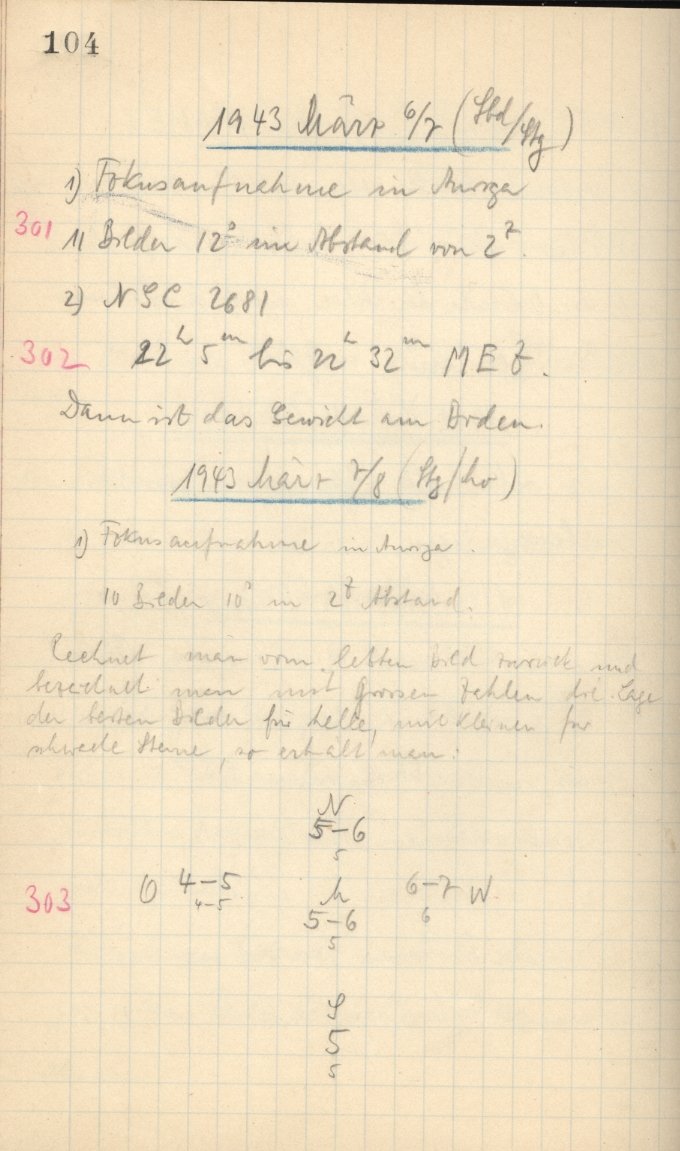 104
1943 März 6/7 (Sbd/Stg)
1) Fokusaufnahme in Auriga
301 11 Bilder 12ˢ im Abstand von 2ᶻ.
2) NGC 2681
302 22ʰ 5ᵐ bis 22ʰ 32ᵐ MEZ.
Dann ist das Gewicht am Boden.
1943 März 7/8 (Stg/Mo)
1) Fokusaufnahme in Auriga.
10 Bilder 10ˢ in 2ᶻ Abstand.
Rechnet man vom letzten Bild zurück und
bezeichnet man mit grossen Zahlen die Lage
der besten Bilder für helle, mit kleinen für
schwache Sterne, so erhält man:
N
5–6
5
303 O 4–5 M 6–7 W
4–5 5–6 6
5
S
5
5